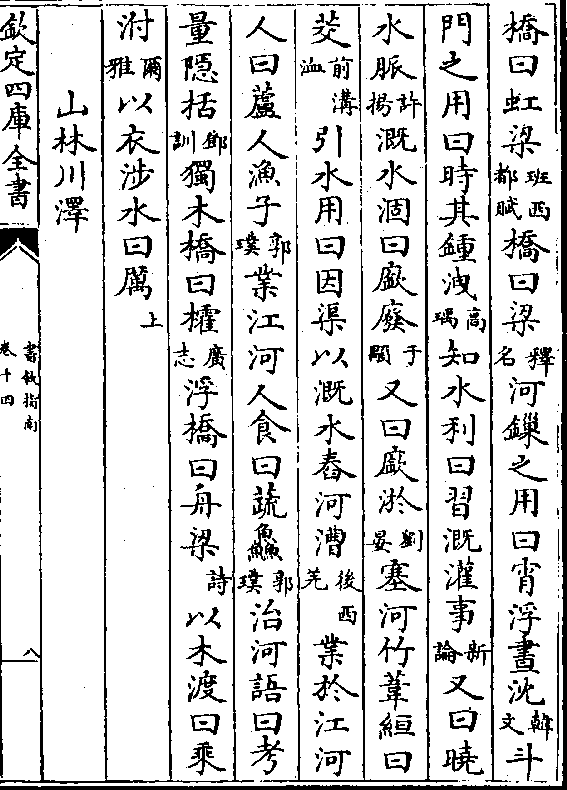 橋曰虹梁班西都賦橋曰梁釋名河鏁之用曰宵浮晝沈韓文斗
門之用曰時其鍾洩高瑀知水利曰習溉灌事新論又曰曉
水脈許揚溉水涸曰廞廢于頔又曰廞淤劉晏塞河竹葦絙曰
茭前溝洫引水用曰因渠以溉水舂河漕後西羌業於江河
人曰蘆人漁子郭璞業江河人食曰蔬鱻郭璞治河語曰考
量隱括鄧訓獨木橋曰榷廣志浮橋曰舟梁詩以木渡曰乘
泭爾雅以衣涉水曰厲上
山林川澤
欽定四庫全書
書敘指南
卷十四
八